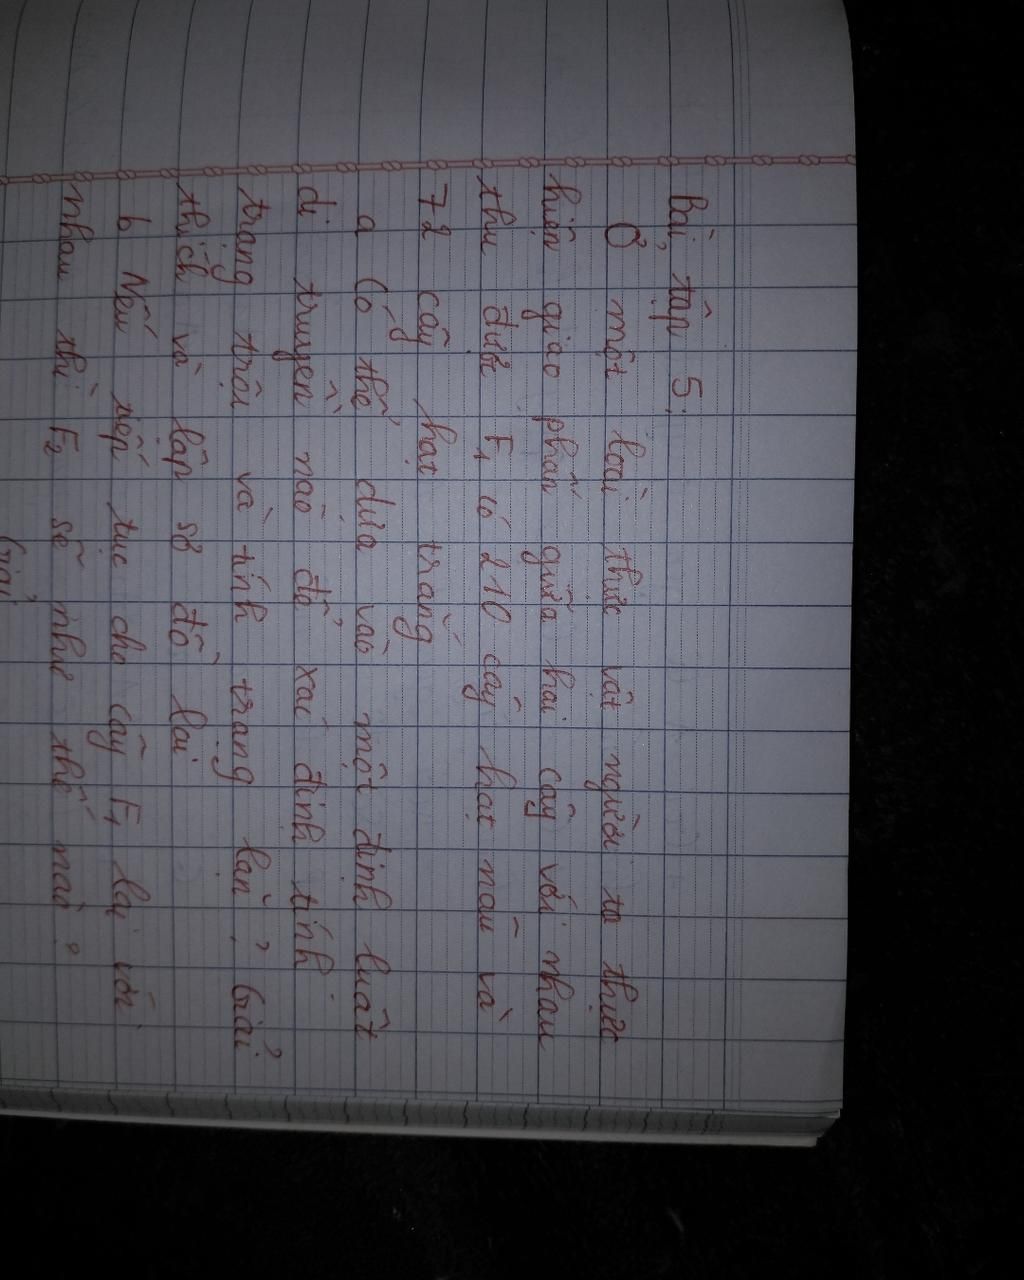 Bài tập 5:
Ở một loài thực vật người ta thực
hiện giao phấn giữa hai cây với nhau
thu được F1 có 210 cây hạt nâu và
72 cây hạt trắng
a Có thể dựa vào một định luật
di truyền nào để xác định tính
trạng trội và tính trạng lặn? Giải
thích và lập sơ đồ lai
b Nếu tiếp tục cho cây F1 lai với
nhau thì F2 sẽ như thế nào?
Giải